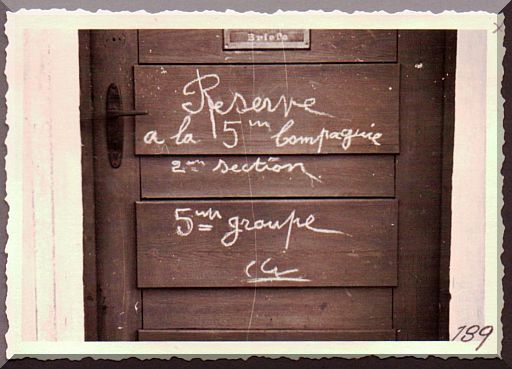 Briefe
Reserve
a la 5me Compagnie
2me section
5me groupe
189